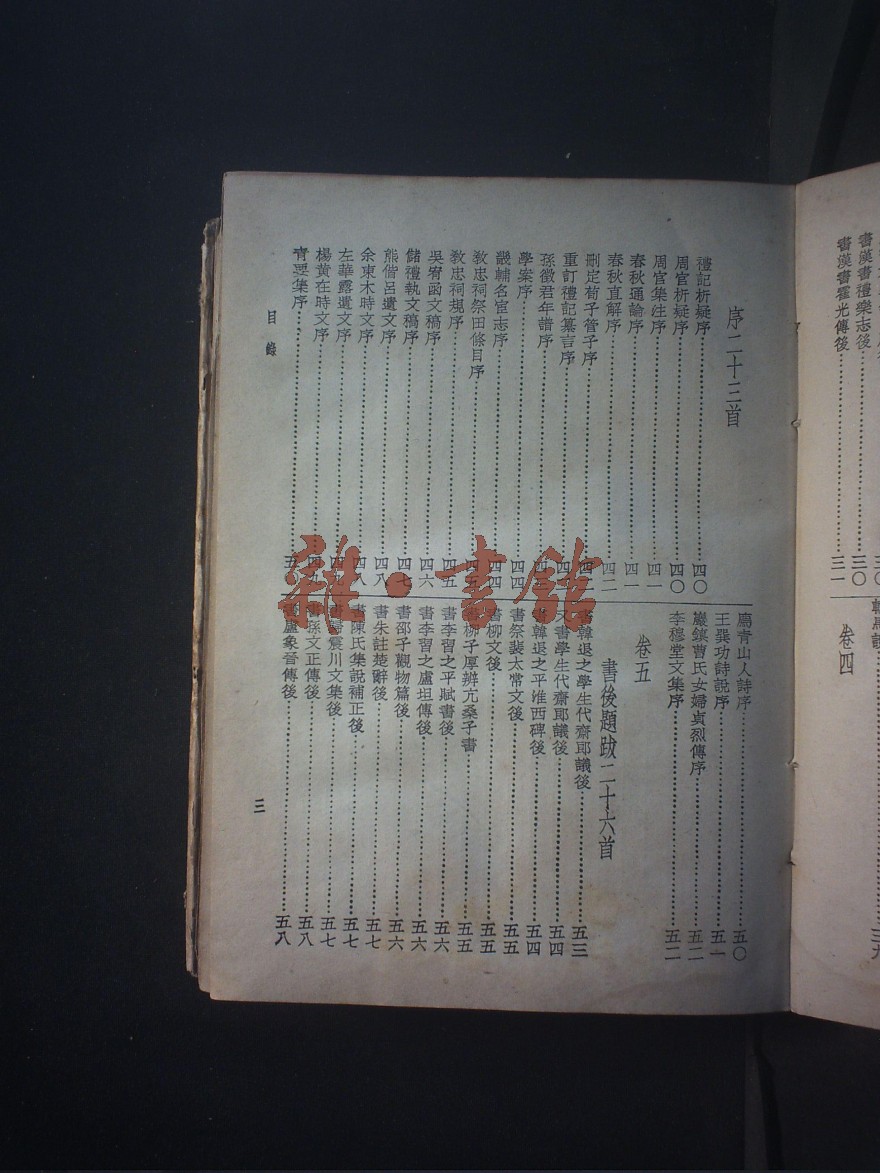 書漢書禮樂志後……三〇
書漢書霍光傳後……三一
卷四
序二十三首
禮記析疑序……四〇
周官析疑序……四〇
周官集注序……四一
春秋通論序……四一
春秋直解序……四二
刪定荀子管子序
重訂禮記纂言序
孫徵君年譜序
學案序……四四
畿輔名宦志序……四四
教忠祠祭田條目序
教忠祠規序……四五
吳宥函文稿序……四六
儲禮執文稿序……四七
熊偕呂遺文序……四八
余東木時文序……四八
左華露遺文序
楊黃在時文序
青要集序……五〇
廌青山人詩序……五〇
王巽功詩說序……五一
巖鎮曹氏女婦貞烈傳序……五二
李穆堂文集序……五二
卷五
書後題跋二十六首
書韓退之學生代齋郎議後……五三
又書學生代齋郎議後……五四
書韓退之平淮西碑後……五四
書祭裴太常文後……五五
書柳文後……五五
書柳子厚辨亢桑子書……五五
書李習之平賦書後……五六
書李習之盧坦傳後……五六
書邵子觀物篇後……五六
書朱註楚辭後……五七
書陳氏集說補正後……五七
書歸震川文集後……五七
書孫文正傳後……五八
書盧象晉傳後……五八
目錄
三
雜·書館